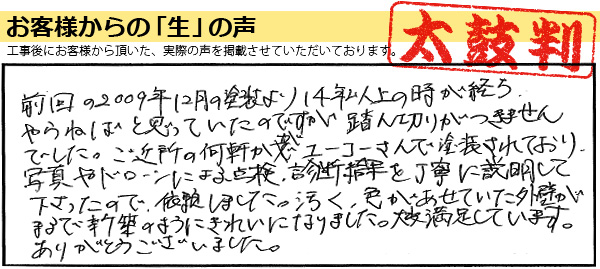 お客様からの「生」の声
工事後にお客様から頂いた、実際の声を掲載させていただいております。
太鼓判
前回の2009年12月の塗装より14年以上の時が経ち、
やらねばと思っていたのですが踏ん切りがつきません
でした。ご近所の何軒かがユーコーさんで塗装されており、
写真やドローンによる点検、診断結果を丁寧に説明して
下さったので、依頼しました。汚く、色があせていた外壁が
まるで新築のようにきれいになりました。大変満足しています。
ありがとうございました。